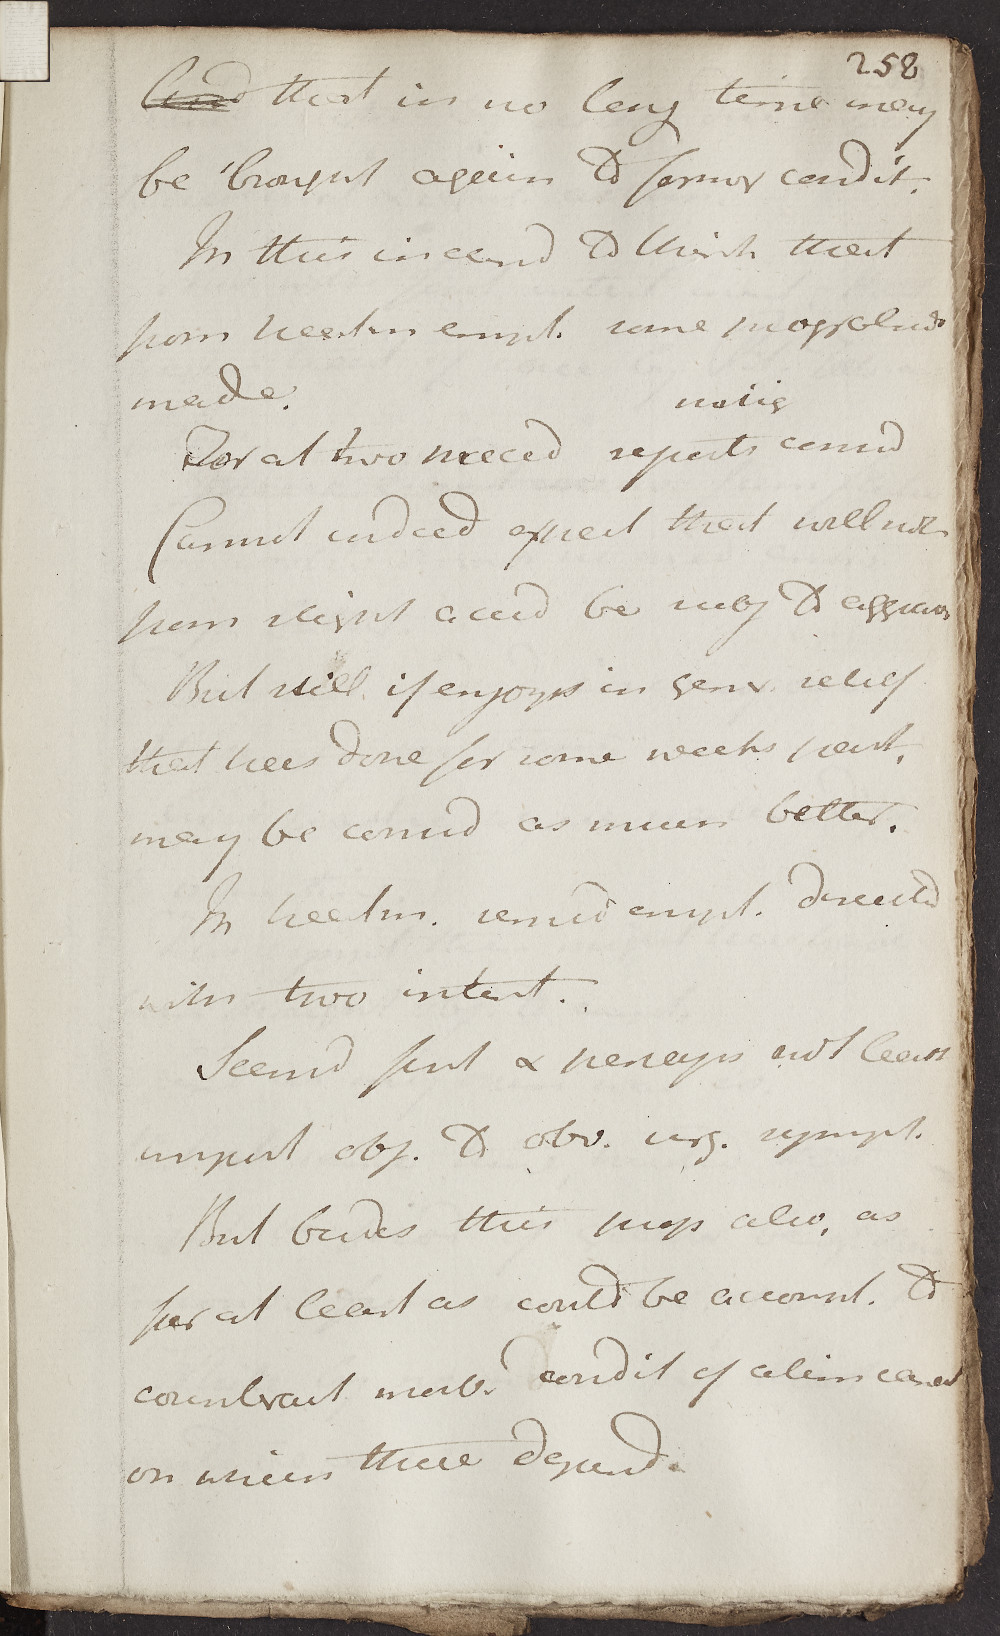 258
And that in no long time may
be brought again to former condit.
In this inclined to think that
from treatm empl. some progress also
made.
nothing
For at two preced reports consid
Cannot indeed expect that will not
from slight accid be subj to aggrav
But still if enjoys in gener relief
that has done for some weeks past,
may be consid as much better.
In treatm. remed empl. directed
with two intent.
Seemd first & perhaps not least
import obj. to obv. urg. sympt.
But besides this props also, as
far at least as could be accompl. to
counteract morb. condit of alim canal
on which these depend.